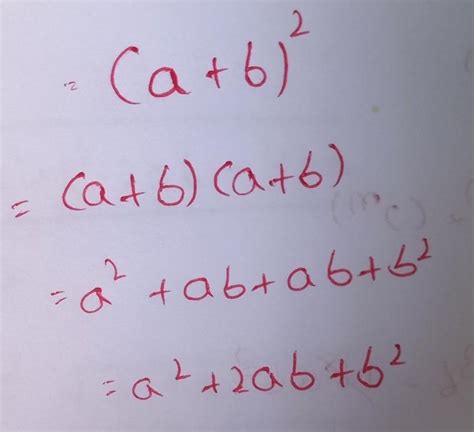 = (a+b)²
= (a+b)(a+b)
= a² + ab + ab + b²
= a² + 2ab + b²